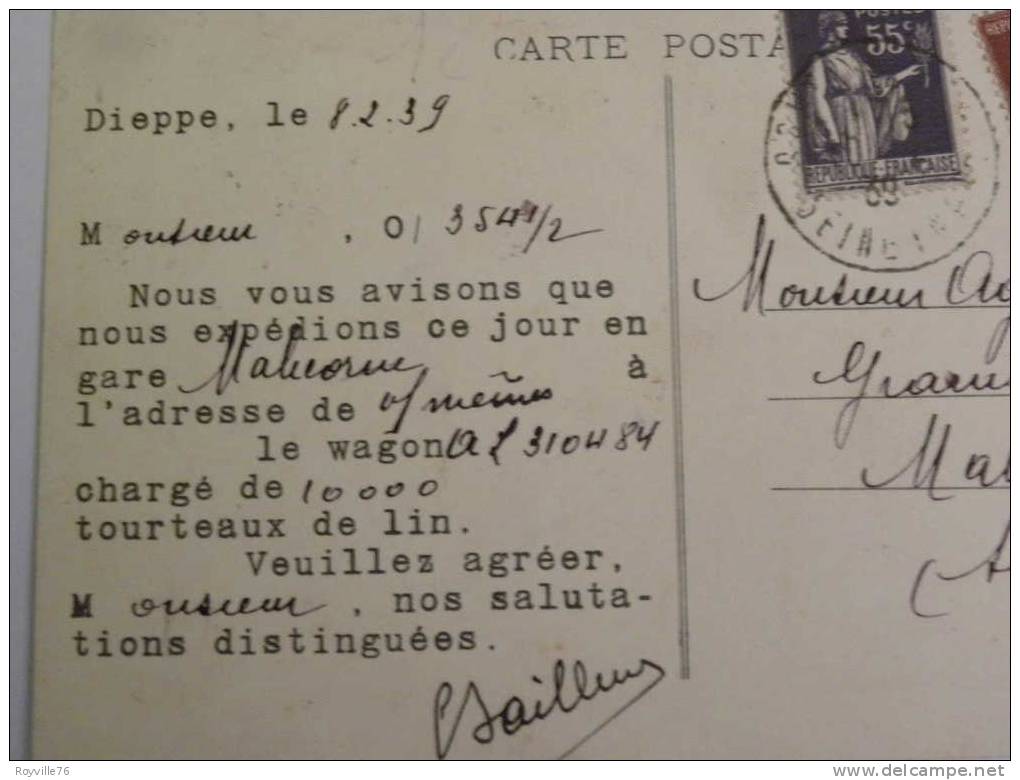 CARTE POSTA
POSTES
55c
REPUBLIQUE-FRANCAISE
39
SEINE INF
Dieppe, le 8.2.39
Monsieur , 0/ 354 1/2
Nous vous avisons que
nous expédions ce jour en
gare Malicorne à
l'adresse de v/ mêmes
le wagon AL 310484
chargé de 10000
tourteaux de lin.
Veuillez agréer,
Monsieur, nos saluta-
tions distinguées.
Monsieur
Mal
Royville76
www.delcampe.net